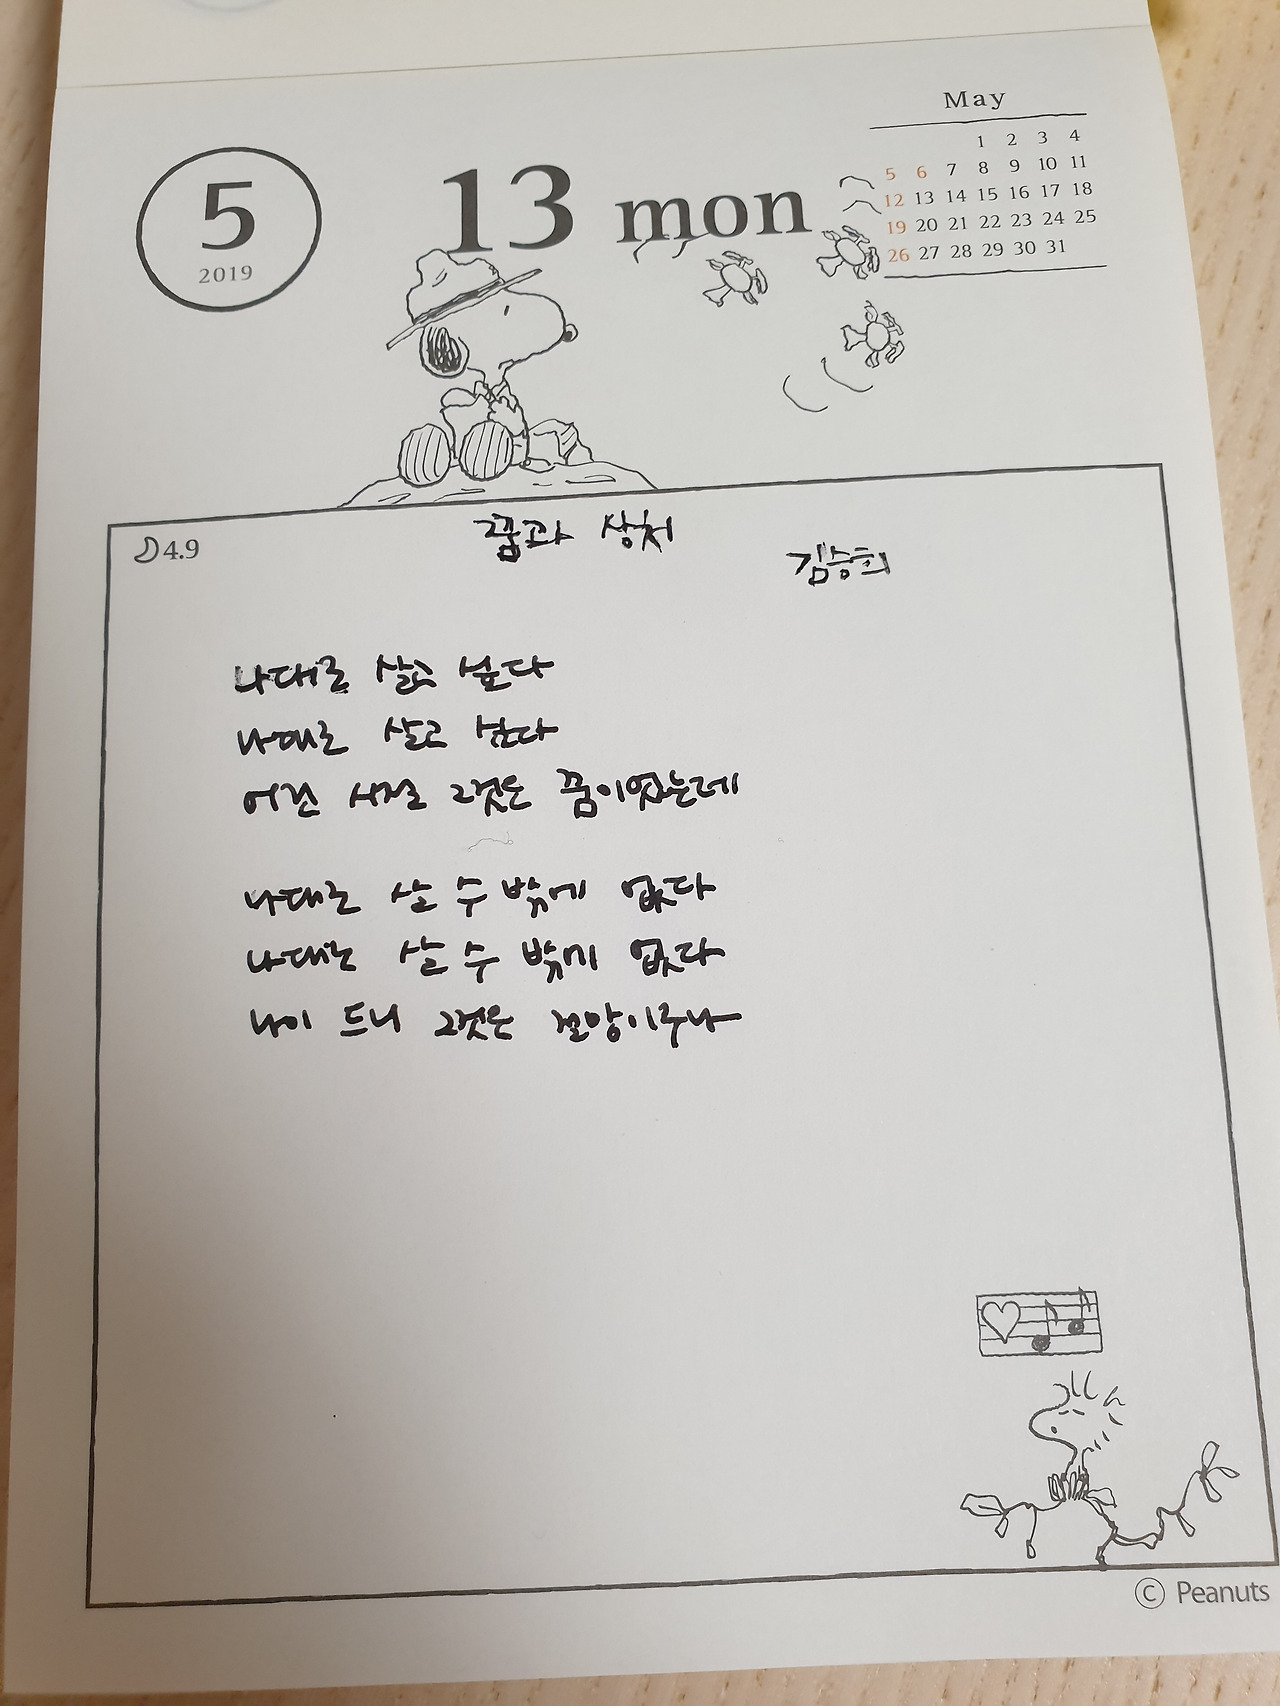 May
5
2019
13 mon
1 2 3 4
5 6 7 8 9 10 11
12 13 14 15 16 17 18
19 20 21 22 23 24 25
26 27 28 29 30 31
4.9
꿈과 상처
김승희
나대로 살고 싶다
나대로 살고 싶다
어린 시절 그것은 꿈이었는데
나대로 살 수 밖에 없다
나대로 살 수 밖에 없다
나이 드니 그것은 절망이구나
© Peanuts